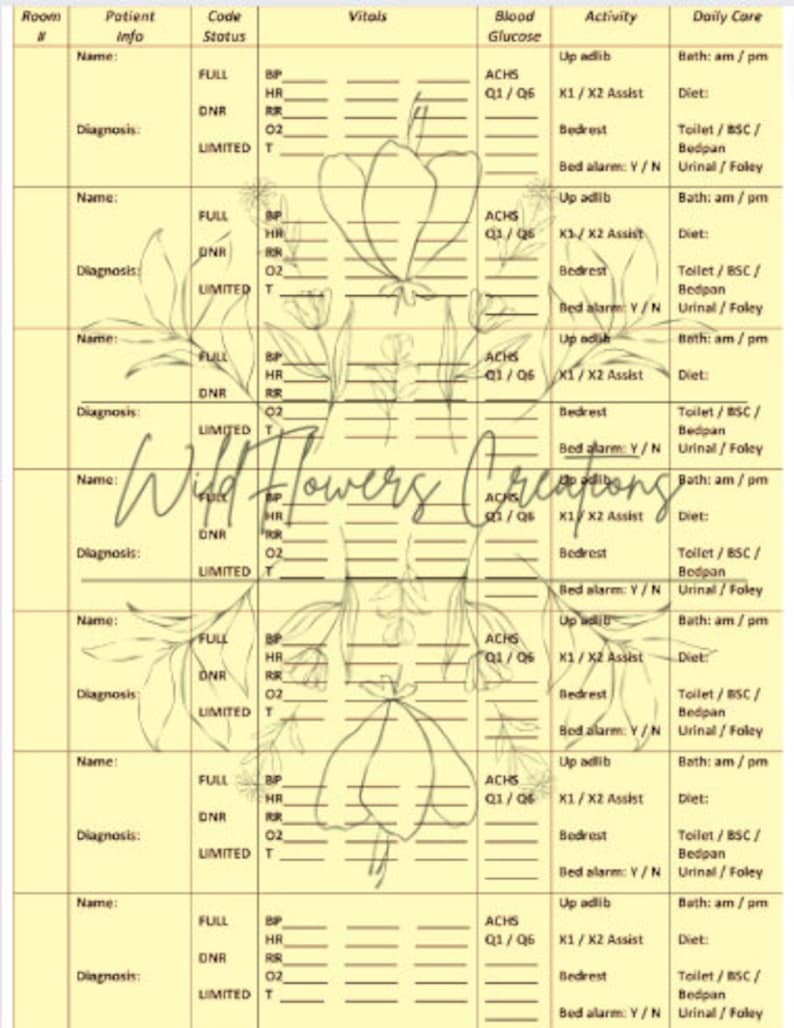 Room # Patient Info Code Status Vitals Blood Glucose Activity Daily Care
Name: Up adlib Bath: am / pm
FULL BP ACHS
HR Q1 / Q6 X1 / X2 Assist Diet:
DNR RR
Diagnosis: O2 Bedrest Toilet / BSC /
LIMITED T Bedpan
Bed alarm: Y / N Urinal / Foley
Name: Up adlib Bath: am / pm
FULL BP ACHS
HR Q1 / Q6 X1 / X2 Assist Diet:
DNR RR
Diagnosis: O2 Bedrest Toilet / BSC /
LIMITED T Bedpan
Bed alarm: Y / N Urinal / Foley
Name: Up adlib Bath: am / pm
FULL BP ACHS
HR Q1 / Q6 X1 / X2 Assist Diet:
DNR RR
Diagnosis: O2 Bedrest Toilet / BSC /
LIMITED T Bedpan
Bed alarm: Y / N Urinal / Foley
WildFlowers Creations
Name: Up adlib Bath: am / pm
FULL BP ACHS
HR Q1 / Q6 X1 / X2 Assist Diet:
DNR RR
Diagnosis: O2 Bedrest Toilet / BSC /
LIMITED T Bedpan
Bed alarm: Y / N Urinal / Foley
Name: Up adlib Bath: am / pm
FULL BP ACHS
HR Q1 / Q6 X1 / X2 Assist Diet:
DNR RR
Diagnosis: O2 Bedrest Toilet / BSC /
LIMITED T Bedpan
Bed alarm: Y / N Urinal / Foley
Name: Up adlib Bath: am / pm
FULL BP ACHS
HR Q1 / Q6 X1 / X2 Assist Diet:
DNR RR
Diagnosis: O2 Bedrest Toilet / BSC /
LIMITED T Bedpan
Bed alarm: Y / N Urinal / Foley
Name: Up adlib Bath: am / pm
FULL BP ACHS
HR Q1 / Q6 X1 / X2 Assist Diet:
DNR RR
Diagnosis: O2 Bedrest Toilet / BSC /
LIMITED T Bedpan
Bed alarm: Y / N Urinal / Foley